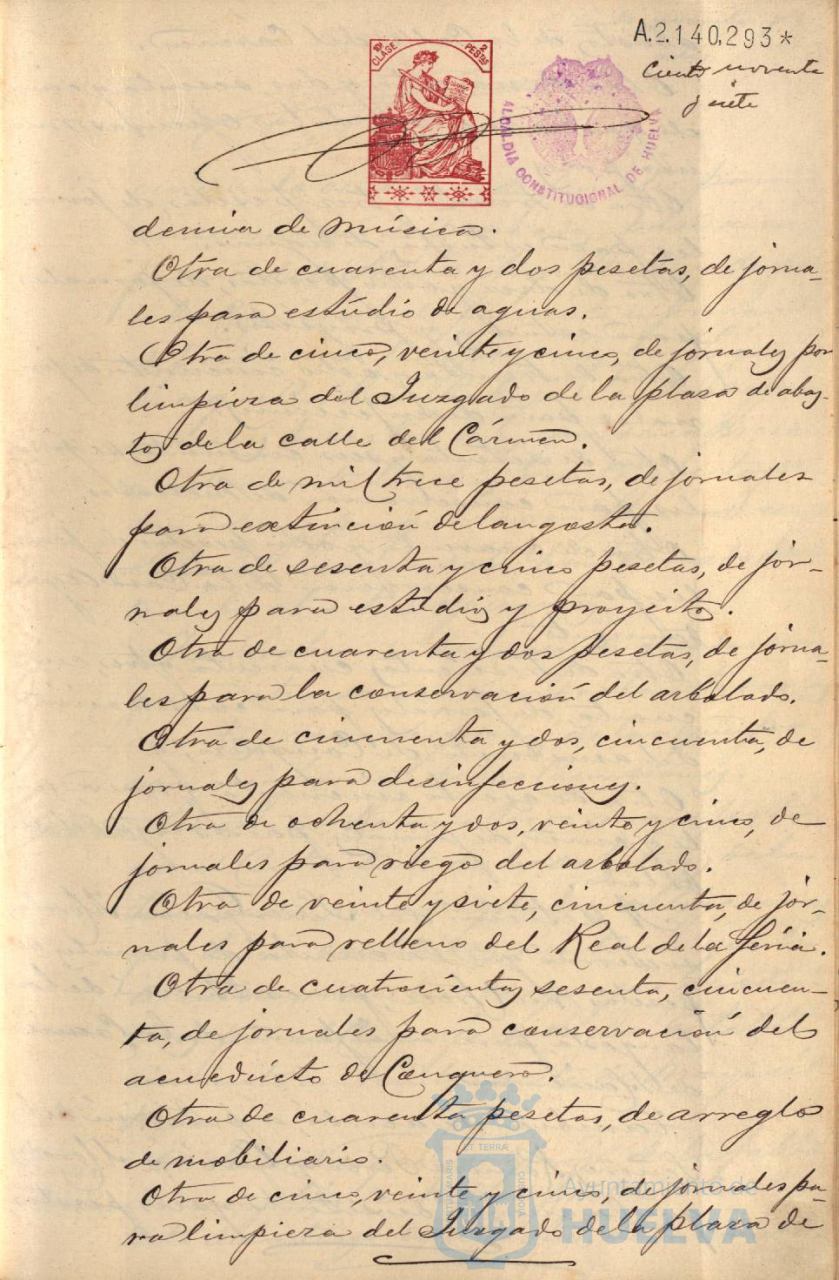 10ª CLASE
2 PESTAS
A.2.140,293*
Ciento noventa
y siete
ALCALDIA CONSTITUCIONAL DE HUELVA
demia de música.
Otra de cuarenta y dos pesetas, de jorna-
les para estúdio de aguas.
Otra de cinco, veinte y cinco, de jornales por
limpieza del Juzgado de la plaza de abas-
tos de la calle del Cármen.
Otra de mil trece pesetas, de jornales
para extinción de langosta.
Otra de sesenta y cinco pesetas, de jor-
nales para estudios y proyectos.
Otra de cuarenta y dos pesetas, de jorna-
les para la conservación del arbolado.
Otra de cincuenta y dos, cincuenta, de
jornales para desinfecciones.
Otra de ochenta y dos, veinte y cinco, de
jornales para riego del arbolado.
Otra de veinte y siete, cincuenta, de jor-
nales para relleno del Real de la féria.
Otra de cuatrocientas sesenta, cincuen-
ta, de jornales para conservación del
acuedúcto de Conquero.
Otra de cuarenta pesetas, de arreglo
de mobiliario.
Otra de cinco, veinte y cinco, de jornales pa-
ra limpieza del Juzgado de la plaza de
Ayuntamiento de
HUELVA